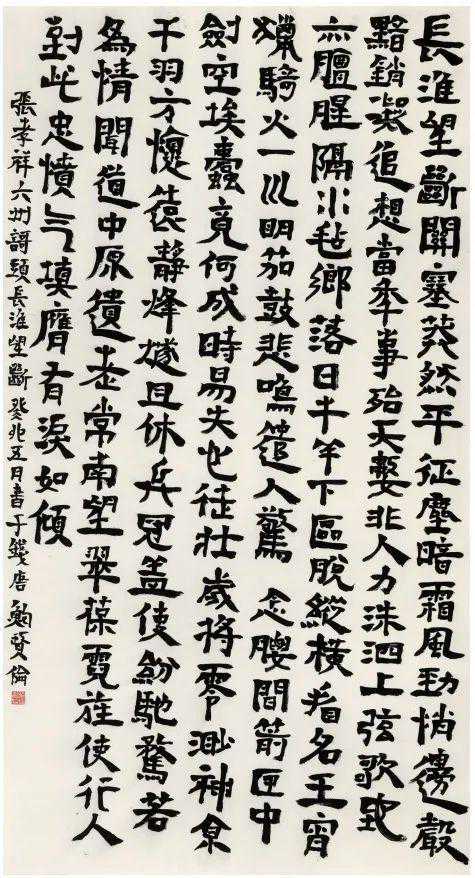 長淮望斷關塞莽然平征塵暗霜風勁悄邊聲
黯銷凝追想當年事殆天數非人力洙泗上弦歌地
亦膻腥隔水毡鄉落日牛羊下區脫縱橫看名王宵
獵騎火一川明笳鼓悲鳴遣人驚 念腰間箭匣中
劍空埃蠹竟何成時易失心徒壯歲將零渺神京
干羽方懷遠靜烽燧且休兵冠盖使紛馳騖若
為情聞道中原遺老常南望翠葆霓旌使行人
到此忠憤气填膺有淚如傾
張孝祥六州謌頭長淮望斷 癸卯五月書于錢唐 鮑賢倫